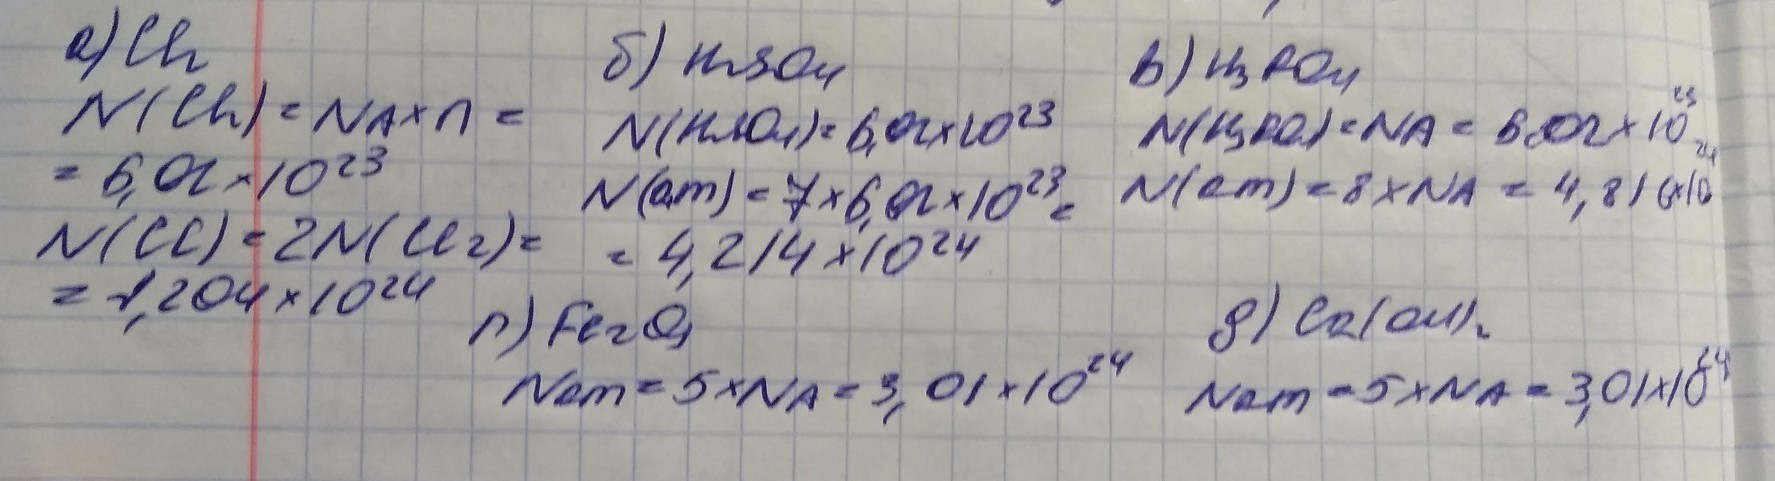 а) Cl₂
N(Cl₂) = NA × n =
= 6,02 × 10²³
N(Cl) = 2N(Cl₂) =
= 1,204 × 10²⁴
б) H₂SO₄
N(H₂SO₄) = 6,02 × 10²³
N(am) = 7 × 6,02 × 10²³ =
= 4,214 × 10²⁴
в) H₃PO₄
N(H₃PO₄) = NA = 6,02 × 10²³
N(am) = 8 × NA = 4,816 × 10²⁴
г) Fe₂O₃
Nam = 5 × NA = 3,01 × 10²⁴
д) Ca(OH)₂
Nam = 5 × NA = 3,01 × 10²⁴